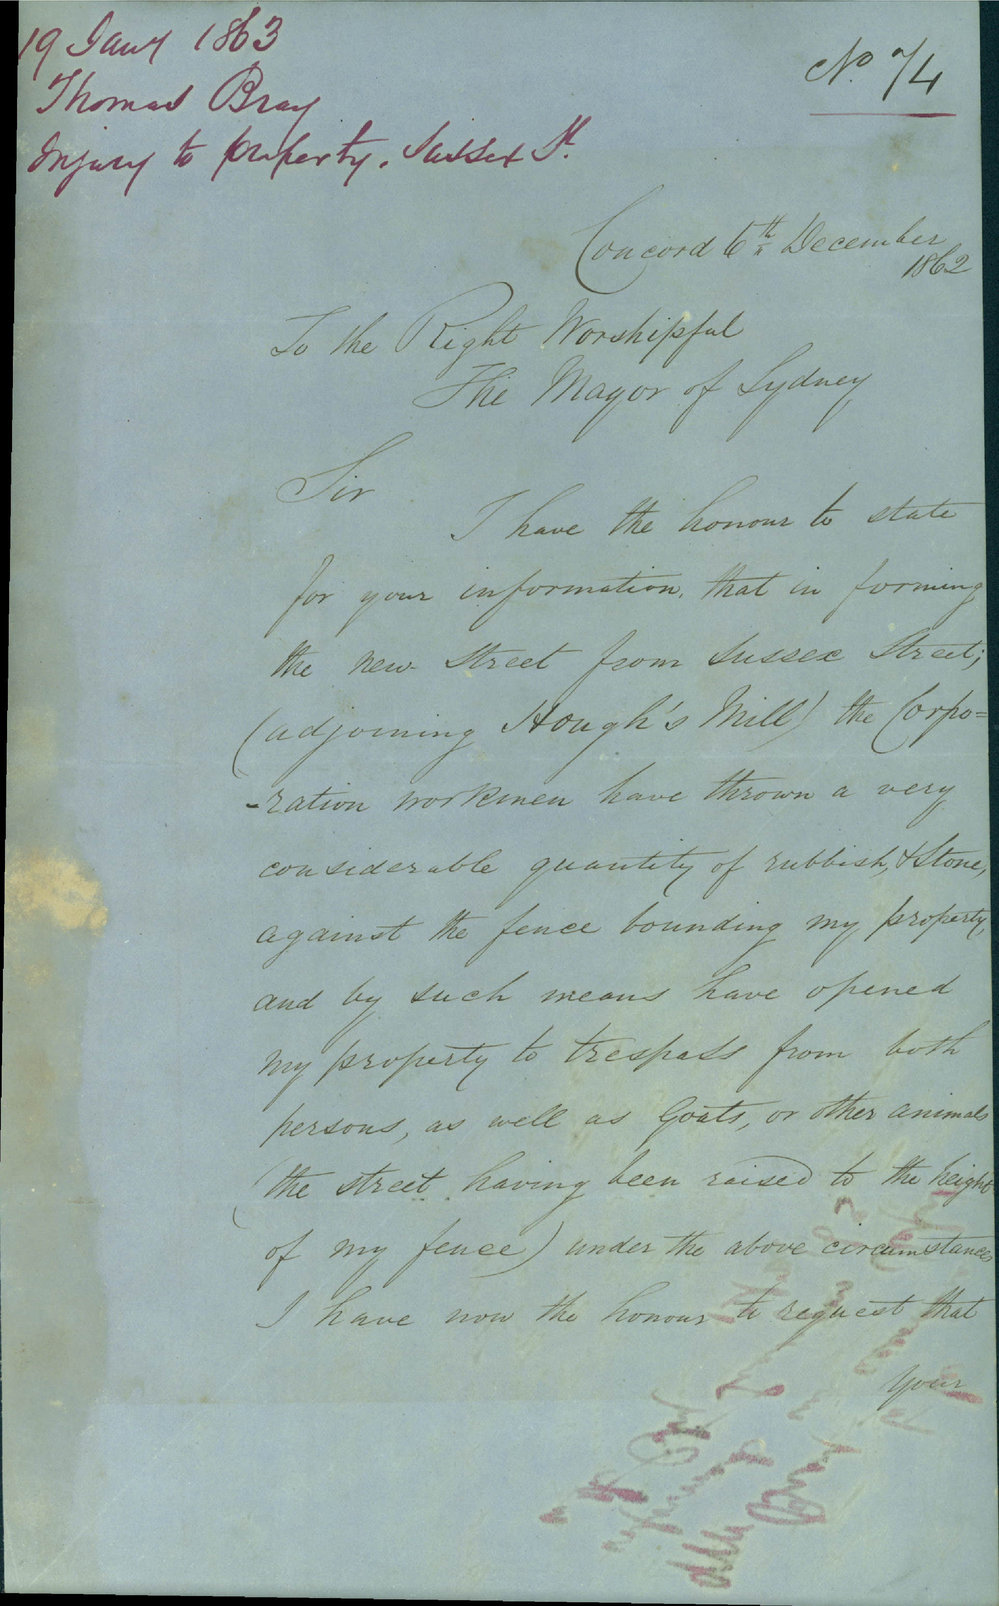 19 Jany 1863
Thomas Bray
Injury to property. Sussex St.
No. 74
Concord 6th December
1862
To the Right Worshipful
The Mayor of Sydney
Sir
I have the honour to state
for your information, that in forming
the new Street from Sussex Street;
(adjoining Hough's Mill) the Corpo=
-ration workmen have thrown a very
considerable quantity of rubbish, & Stone,
against the fence bounding my property,
and by such means have opened
my property to trespass from both
persons, as well as Goats, or other animals
(the street having been raised to the height
of my fence) under the above circumstances
I have now the honour to request that
Your